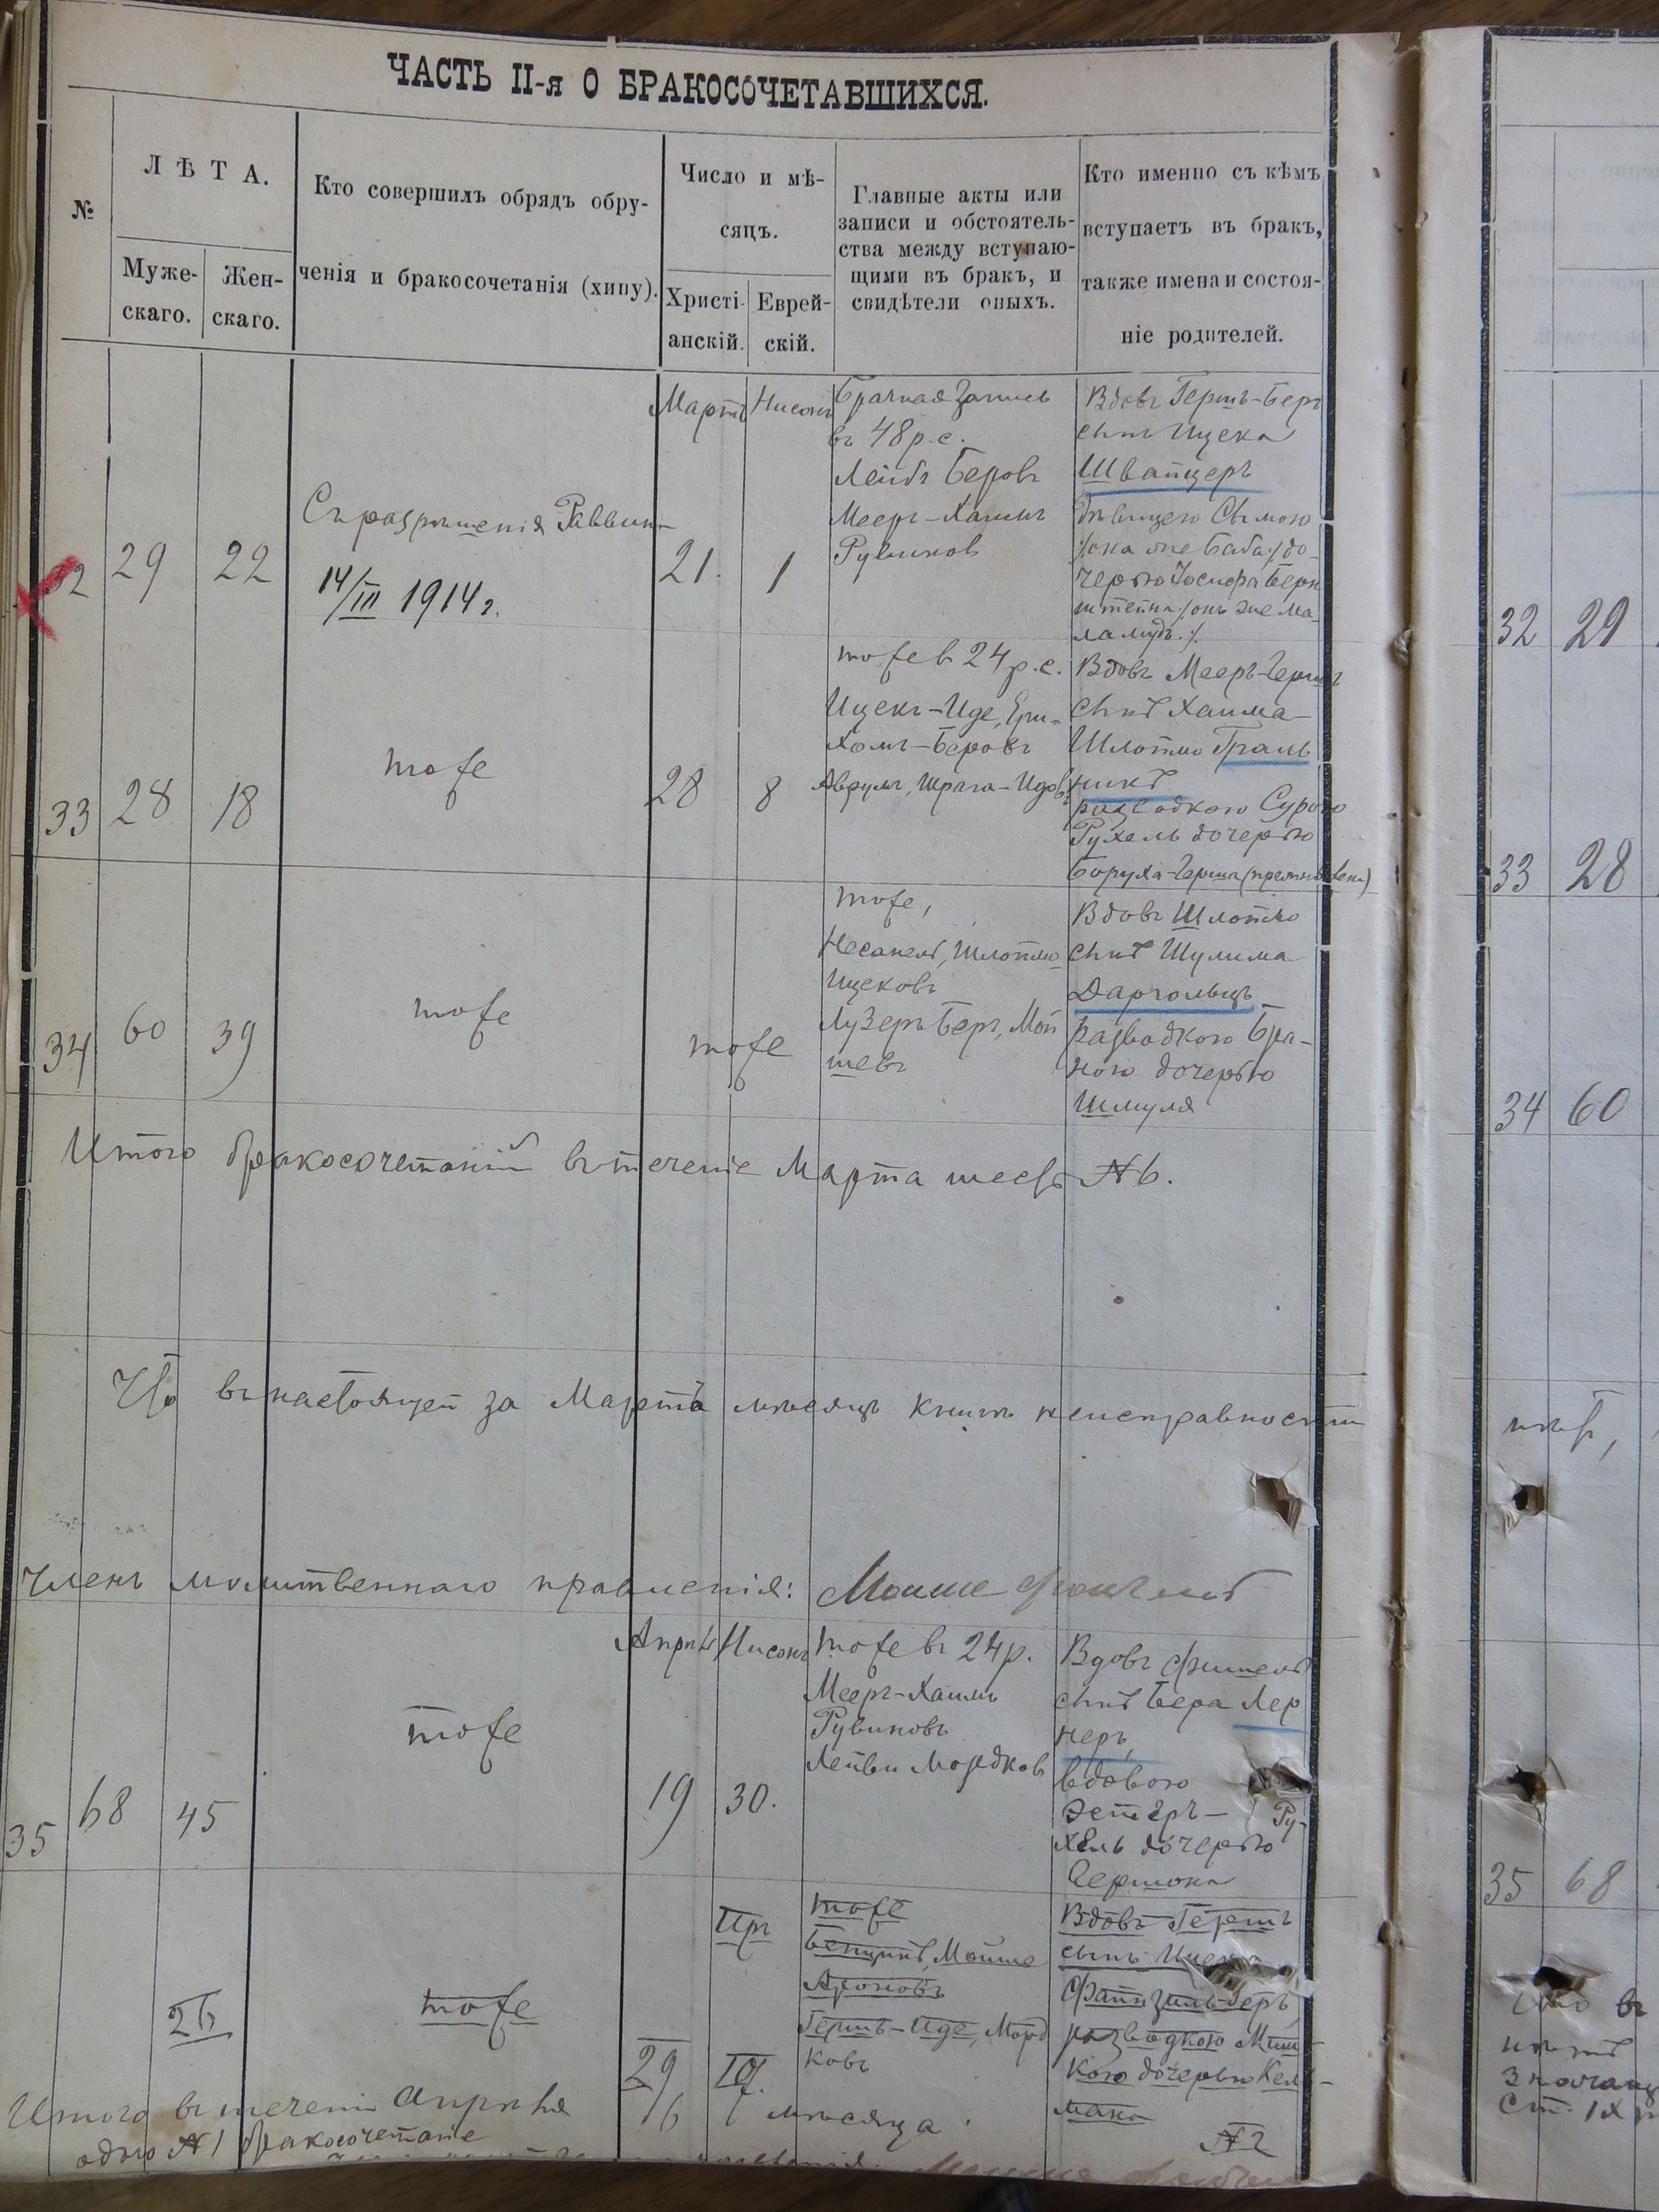 ЧАСТЬ II-я О БРАКОСОЧЕТАВШИХСЯ.
№
ЛѢТА.
Муже-
скаго.
Жен-
скаго.
Кто совершилъ обрядъ обру-
ченія и бракосочетанія (хипу).
Число и мѣ-
сяцъ.
Христі-
анскій.
Еврей-
скій.
Главные акты или
записи и обстоятель-
ства между вступаю-
щими въ бракъ, и
свидѣтели оныхъ.
Кто именно съ кѣмъ
вступаетъ въ бракъ,
также имена и состоя-
ніе родителей.
32
29
22
Съ разрѣшенія Раввина
14/III 1914 г.
Мартъ
21.
Нисонъ
1
Брачная запись
въ 48 р. с.
Лейбъ Беровъ
Мееръ-Хаимъ
Рувиновъ
Вдовъ Гершъ-Беръ
сынъ Ицека
Швайцеръ
дѣвицею Симою
/:она же Баба:/ до-
черью Іосифа Берн
штейна /:онъ же Ма-
ламудъ:/
33
28
18
тоже
28
8
тоже въ 24 р. с.
Ицекъ-Иде, Ери-
хомъ-Беровъ
Аврумъ, Шрага-Идовъ
Вдовъ Мееръ-Гершъ
сынъ Хаима-
Шлотмо Граль
никъ
разводкою Сурою
Рухель дочерью
Боруха-Герша
34
60
39
тоже
тоже
тоже,
Несанель, Шлотмо
Ицековъ
Лузеръ Беръ, Мой
шевъ
Вдовъ Шлотмо
сынъ Шулима
Даргольцъ
разводкою Бра-
ною дочерью
Шмуля
Итого бракосочетаній въ теченіе Марта шесть № 6.
Что въ настоящей за Мартъ мѣсяцъ книгѣ неисправности
Членъ молитвеннаго правленія: Мойше
35
68
45
тоже
Апрѣль
19
Нисонъ
30.
тоже въ 24 р.
Мееръ-Хаимъ
Рувиновъ
Лейви Мордков
Вдовъ Фишель
сынъ Бера Лер
неръ
вдовою
Эстеръ- Ру-
хель дочерью
Гершона
26
тоже
29
Иръ
тоже
Бенционъ, Мойше
Ароновъ
Гершъ-Иде, Морд
ковъ
Вдовъ Гершъ
сынъ Ицека
Файнзильберъ
разводкою Мин-
кою дочерью Кель-
мана
Итого въ теченіи Апрѣля мѣсяца
одно № 1 бракосочетаніе
32 29
33 28
34 60
нѣтъ,
35 68